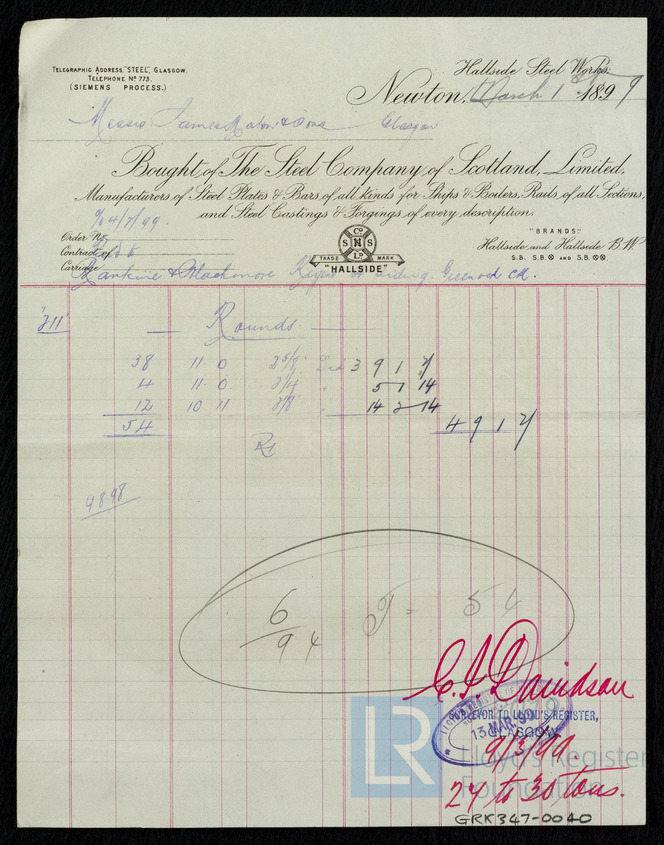 TELEGRAPHIC ADDRESS, "STEEL", GLASGOW.
TELEPHONE Nº 773.
(SIEMENS PROCESS.)
Hallside Steel Works.
Newton, March 1 1899
Messrs James & Sons Glasgow
Bought of The Steel Company of Scotland, Limited,
Manufacturers of Steel Plates & Bars of all kinds for Ships & Boilers, Rails of all Sections,
and Steel Castings & Forgings of every description.
4/7/99.
Order Nº
Contract of
Carriage
Cº
S H S
Lº
TRADE MARK
"HALLSIDE"
"BRANDS"
Hallside, and Hallside B.W.
S.B. S.B. AND S.B.
Rankine & Blackmore Greenock
311
Rounds.
38 11 0 2 5/8 3 9 1 7
4 11 0 3/4 " 5 1 14
12 10 11 7/8 " 14 2 14
54 4 9 1 7
4898
6
94 54
Davidson
SURVEYOR TO LLOYD'S REGISTER,
GLASGOW.
13 MAR. 99
9/3/99.
24 to 30 tons.
LR
Lloyd's Register
Foundation
GRK347-0040